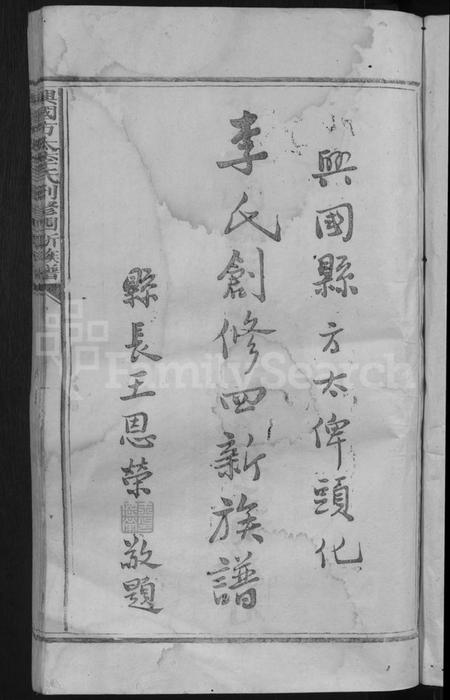 興國縣方太俾頭化
李氏創修四新族譜
縣長王恩榮 敬題
興國方太李氏創修四新族譜
FamilySearch